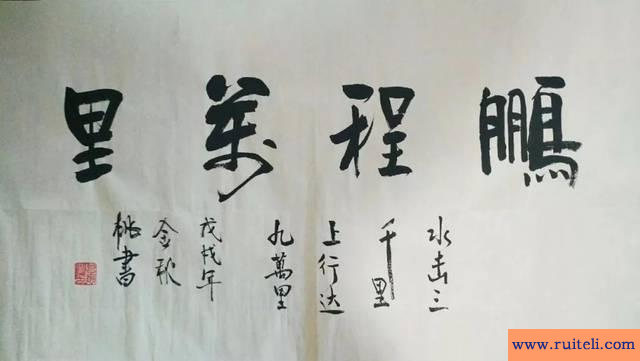 鵬程萬里
水击三
千里
上行达
九萬里
戊戌年
金秋
書
www.ruiteli.com